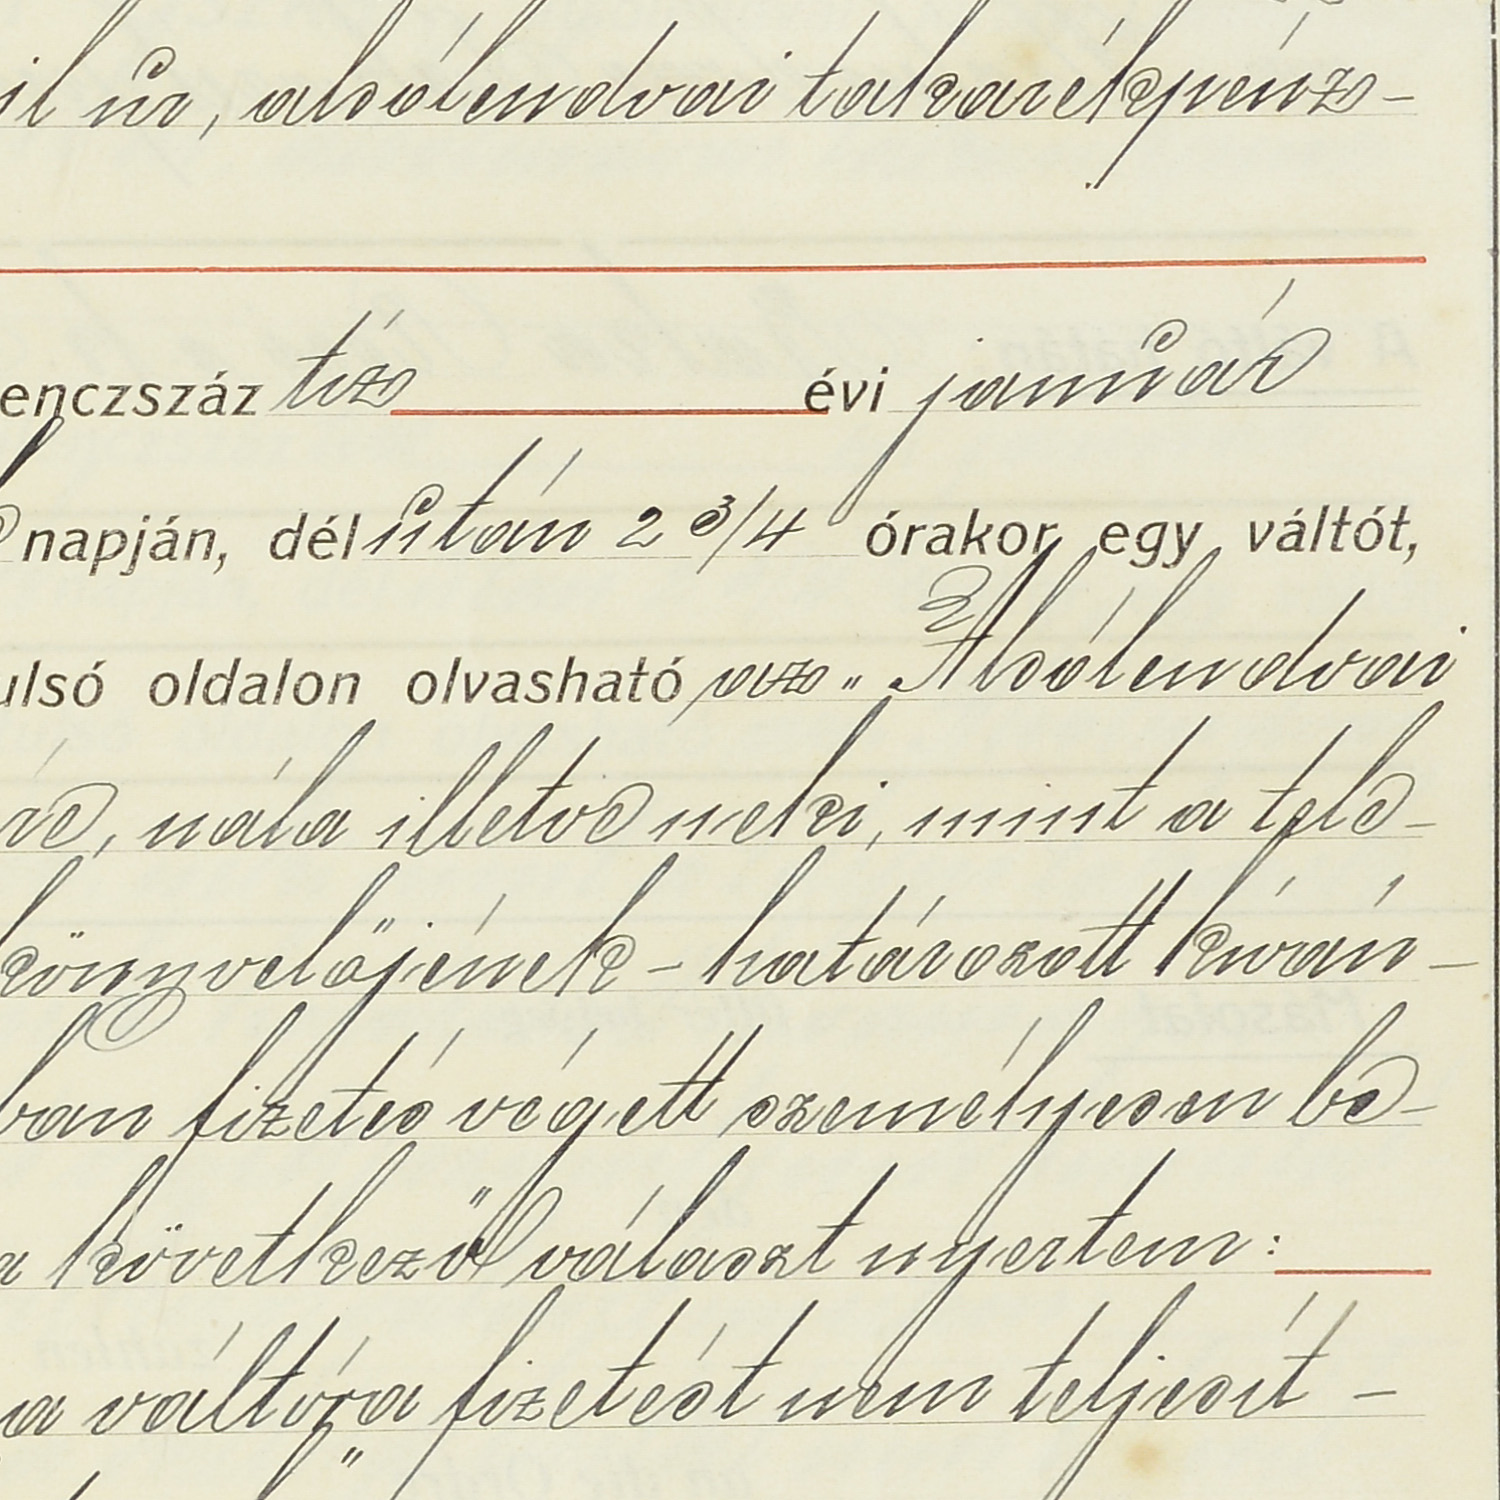 il úr, alsólendvai takarékpénz-
enczszáz tíz évi január
napján, dél után 2 3/4 órakor egy váltót,
ulsó oldalon olvasható az „Alsólendvai
re, nála illetve neki, mint a tele-
könyvelőjének - határozott kíván-
ban fizetés végett személyesen be-
a következő választ nyertem:
a váltóra fizetést nem teljesít -